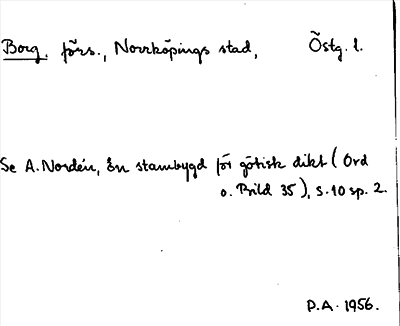 Borg. förs., Norrköpings stad, Östg. l.
Se A. Nordén, En stambygd för götisk dikt (Ord
o. Bild 35), s. 10 sp. 2.
P.A. 1956.